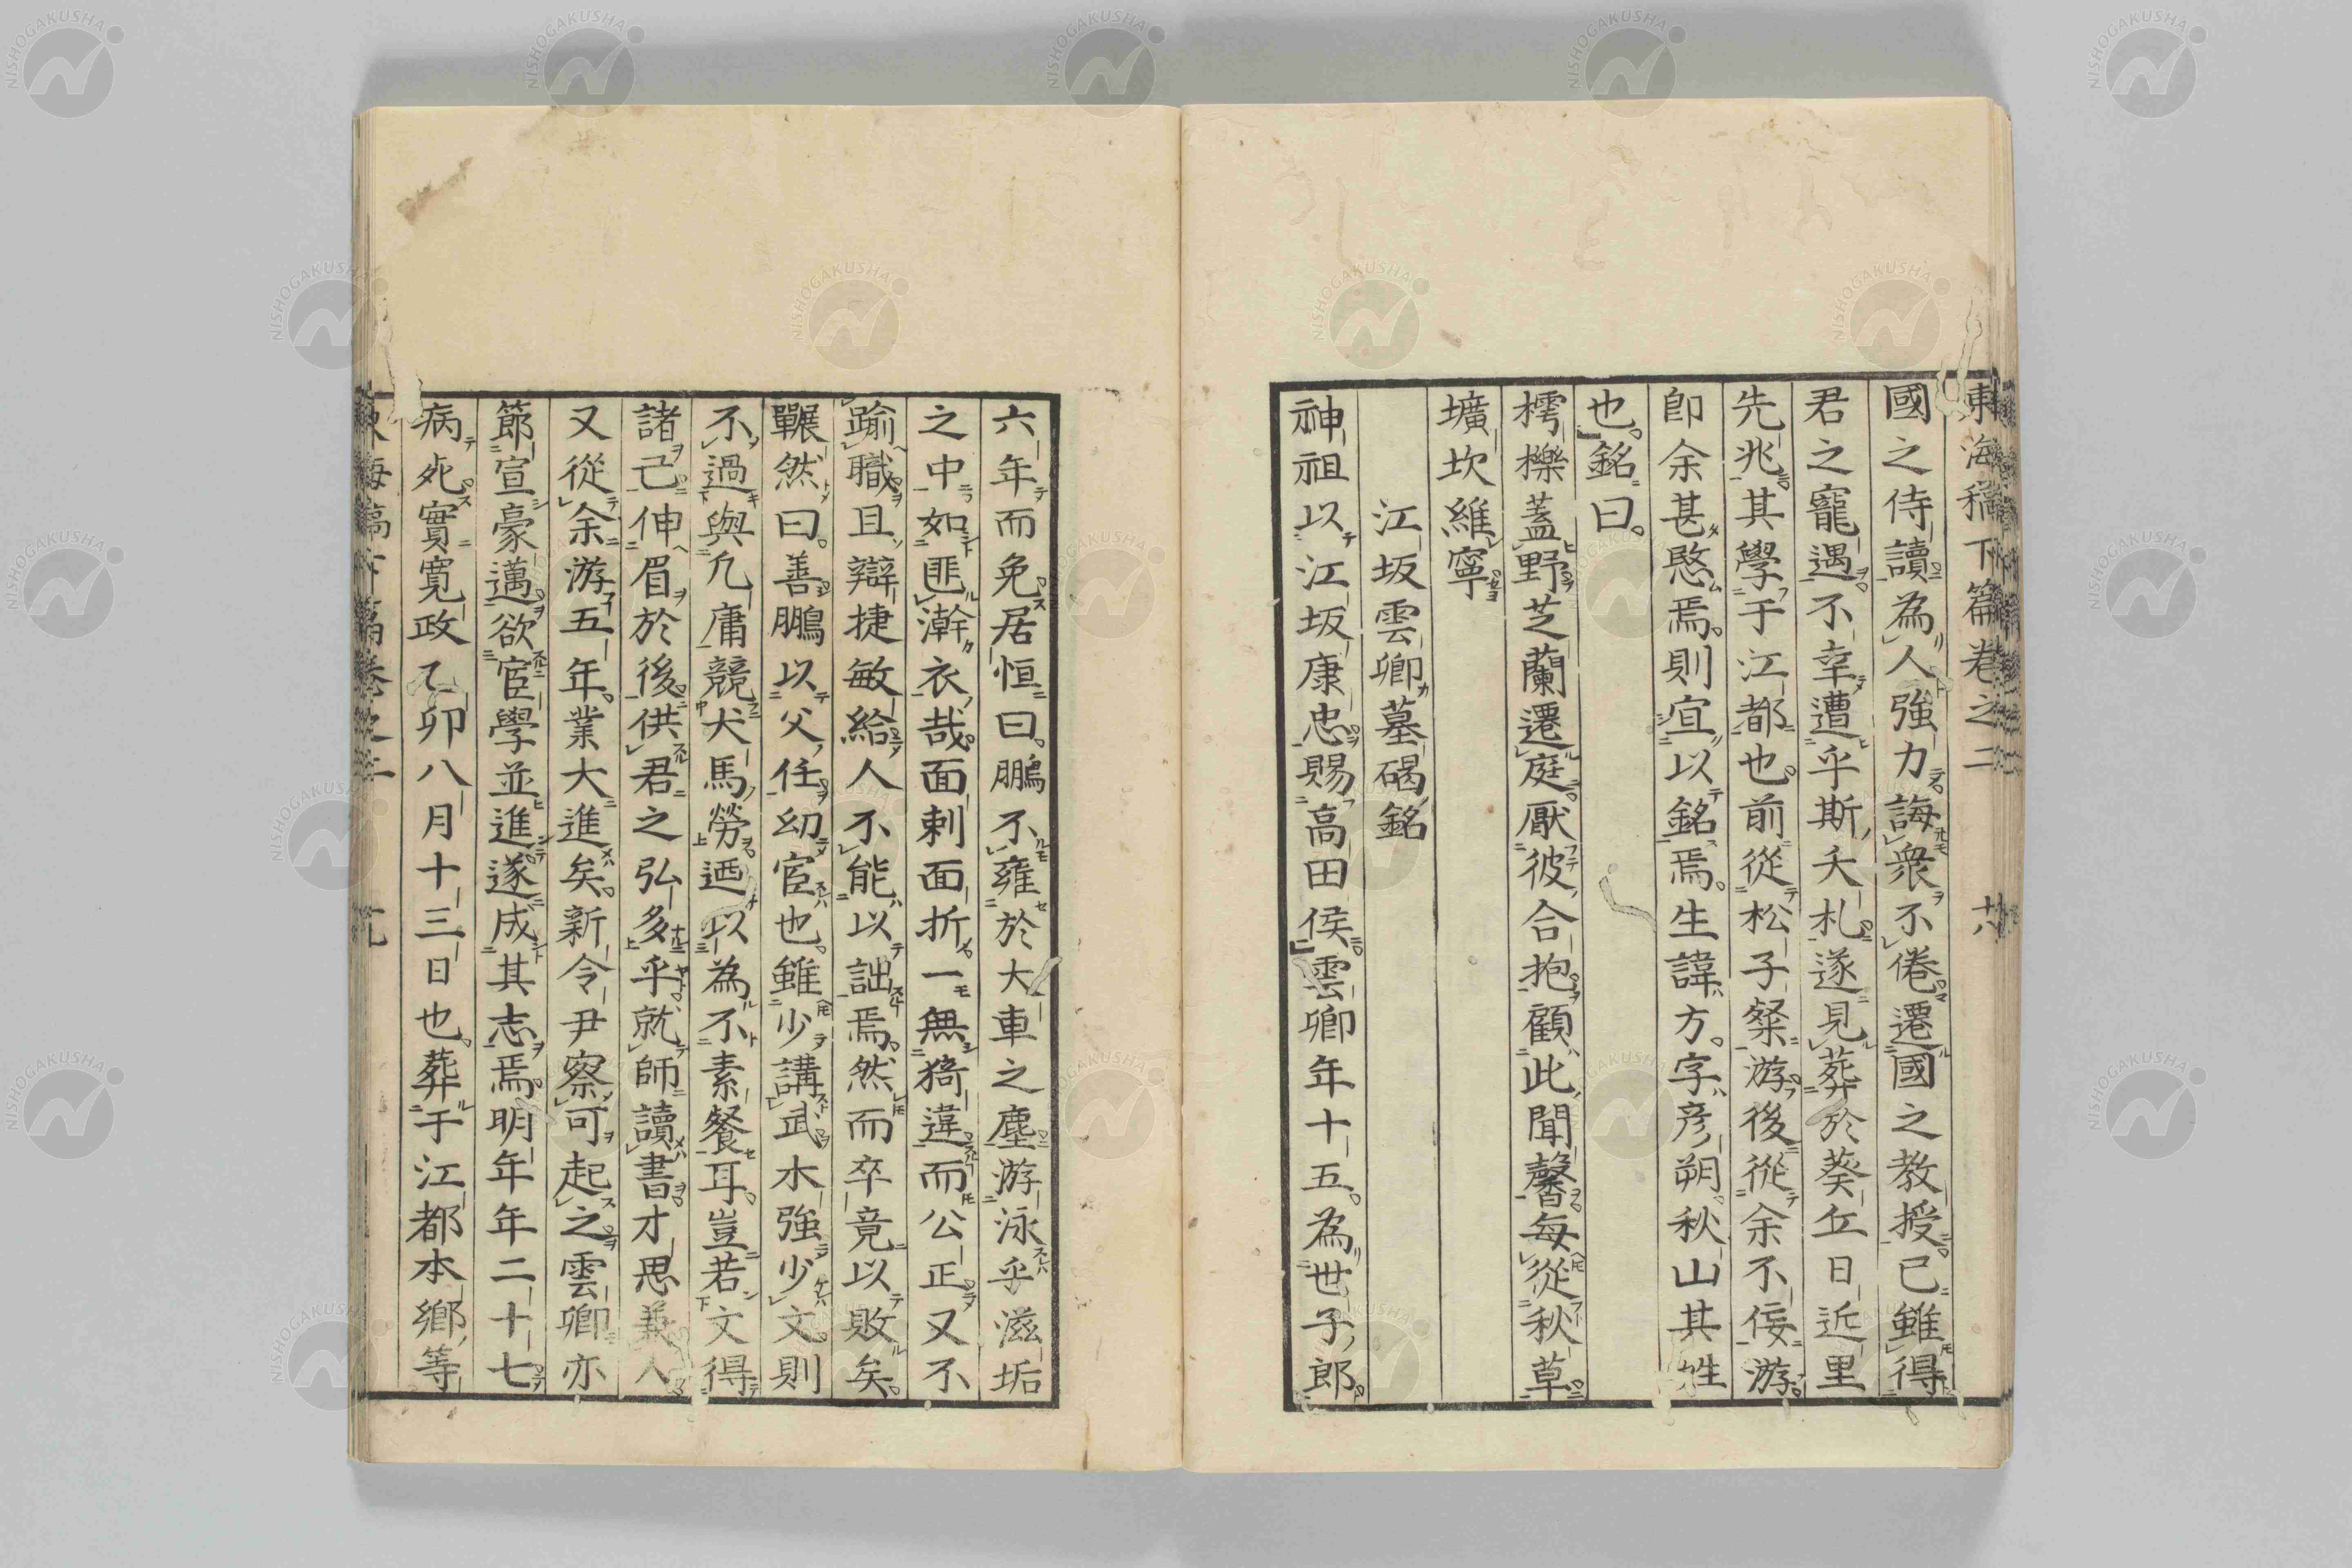 東海稿下篇卷之二 十八
國之侍讀為人強力誨衆不倦遷國之教授已雖得
君之寵遇不幸遭乎斯夭札遂見葬於葵丘日近里
先兆其學于江都也前從松子粲游後從余不佞游
即余甚愍焉則宜以銘焉生諱方字彦朔秋山其姓
也銘曰
樗櫟蓋野芝蘭遷庭厭彼合抱顧此聞馨每從秋草
壙坎維寧
江坂雲卿墓碣銘
神祖以江坂康忠賜高田侯雲卿年十五為世子郎
六年而免居恒曰鵬不雍於大車之塵游泳乎滋垢
之中如匪澣衣哉面刺面折一無猗違而公正又不
踰職且辯捷敏給人不能以詘焉然而卒竟以敗矣
囅然曰善鵬以父任幼宦也雖少講武木強少文則
不過與凡庸競犬馬勞迺以為不素餐耳豈若文得
諸己伸眉於後供君之弘多乎就師讀書才思兼人
又從余游五年業大進矣新令尹察可起之雲卿亦
節宣豪邁欲宦學並進遂成其志焉明年年二十七
病死實寬政乙卯八月十三日也葬于江都本鄉等
NISHOGAKUSHA